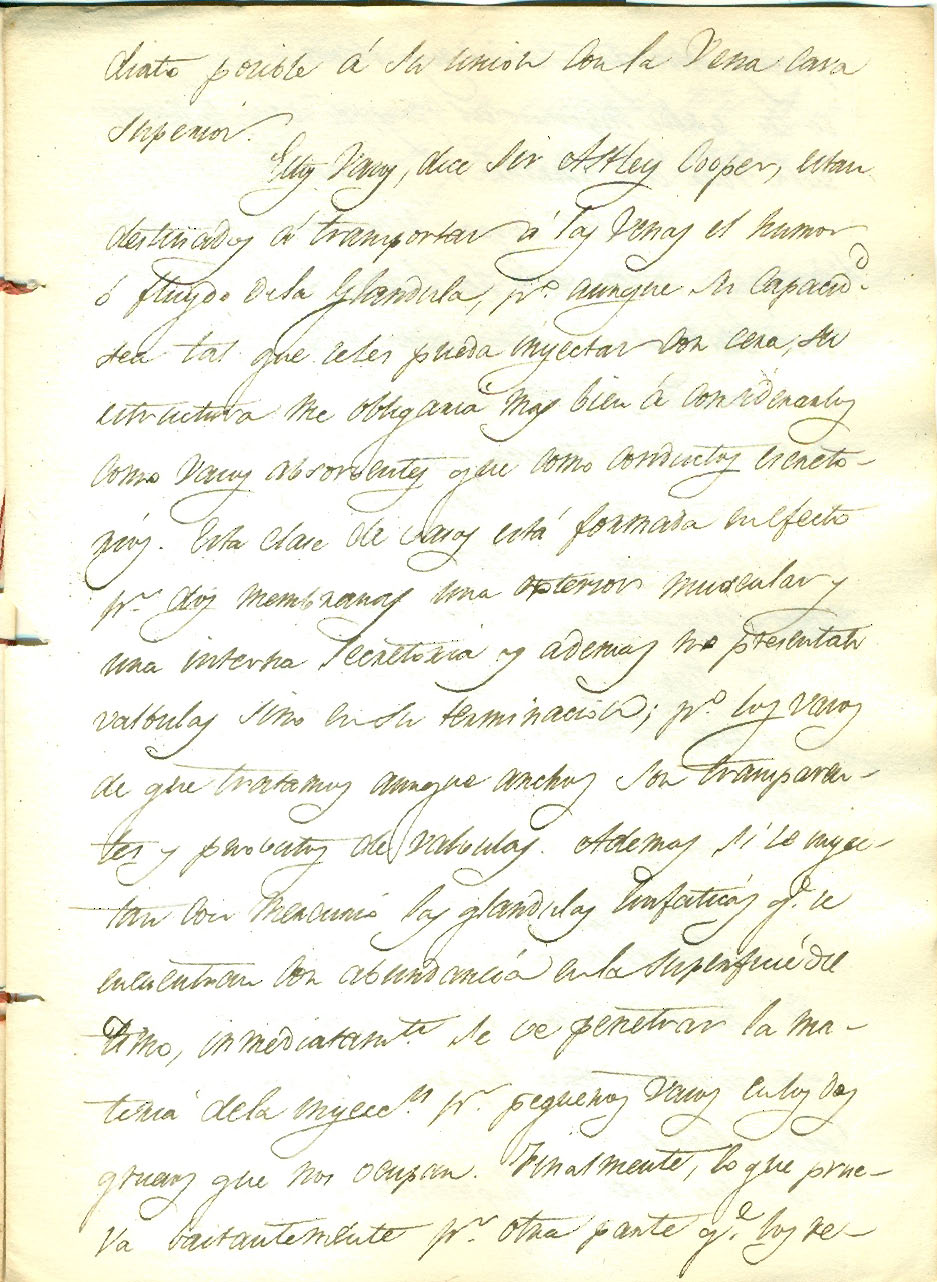 diato posible á su union con la Vena Cava
Superior.
Estos Vasos, dice Sir Astley Cooper, estan
destinados á transportar á las Venas el humor
ó fluydo de la Glandula, pº. aunque su Capacidᵈ.
sea tal que se les pueda inyectar con cera, su
estructura me obligaria mas bien á considerarlos
como Vasos absorventes que como conductos escreto-
rios. Esta clase de vasos está formada en efecto
pʳ. dos membranas una esterior muscular y
una interna Secretoria y ademas no presentan
valbulas sino en su terminacion; pº. los vasos
de que tratamos aunque anchos son transparen-
tes y provistos de valbulas. Ademas si se inyec-
tan con mercurio las glandulas linfaticas qᵉ. se
encuentran con abundancia en la superficie del
Timo, inmediatamᵗᵉ. se ve penetrar la ma-
teria de la inyeccⁿ pʳ. pequeños Vasos en los dos
gruesos que nos ocupan. Finalmente, lo que prue-
va bastantemente pʳ. otra parte qᵉ. los re-